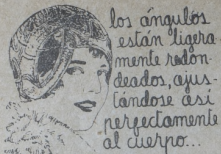 los ángulos
están ligera
mente redon-
deados, ajus-
tándose así
perfectamente
al cuerpo...